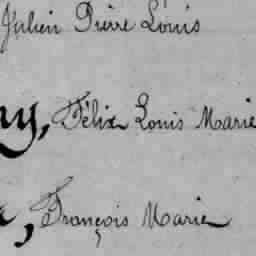 Julien Pierre Louis
y, Félix Louis Marie
, François Marie